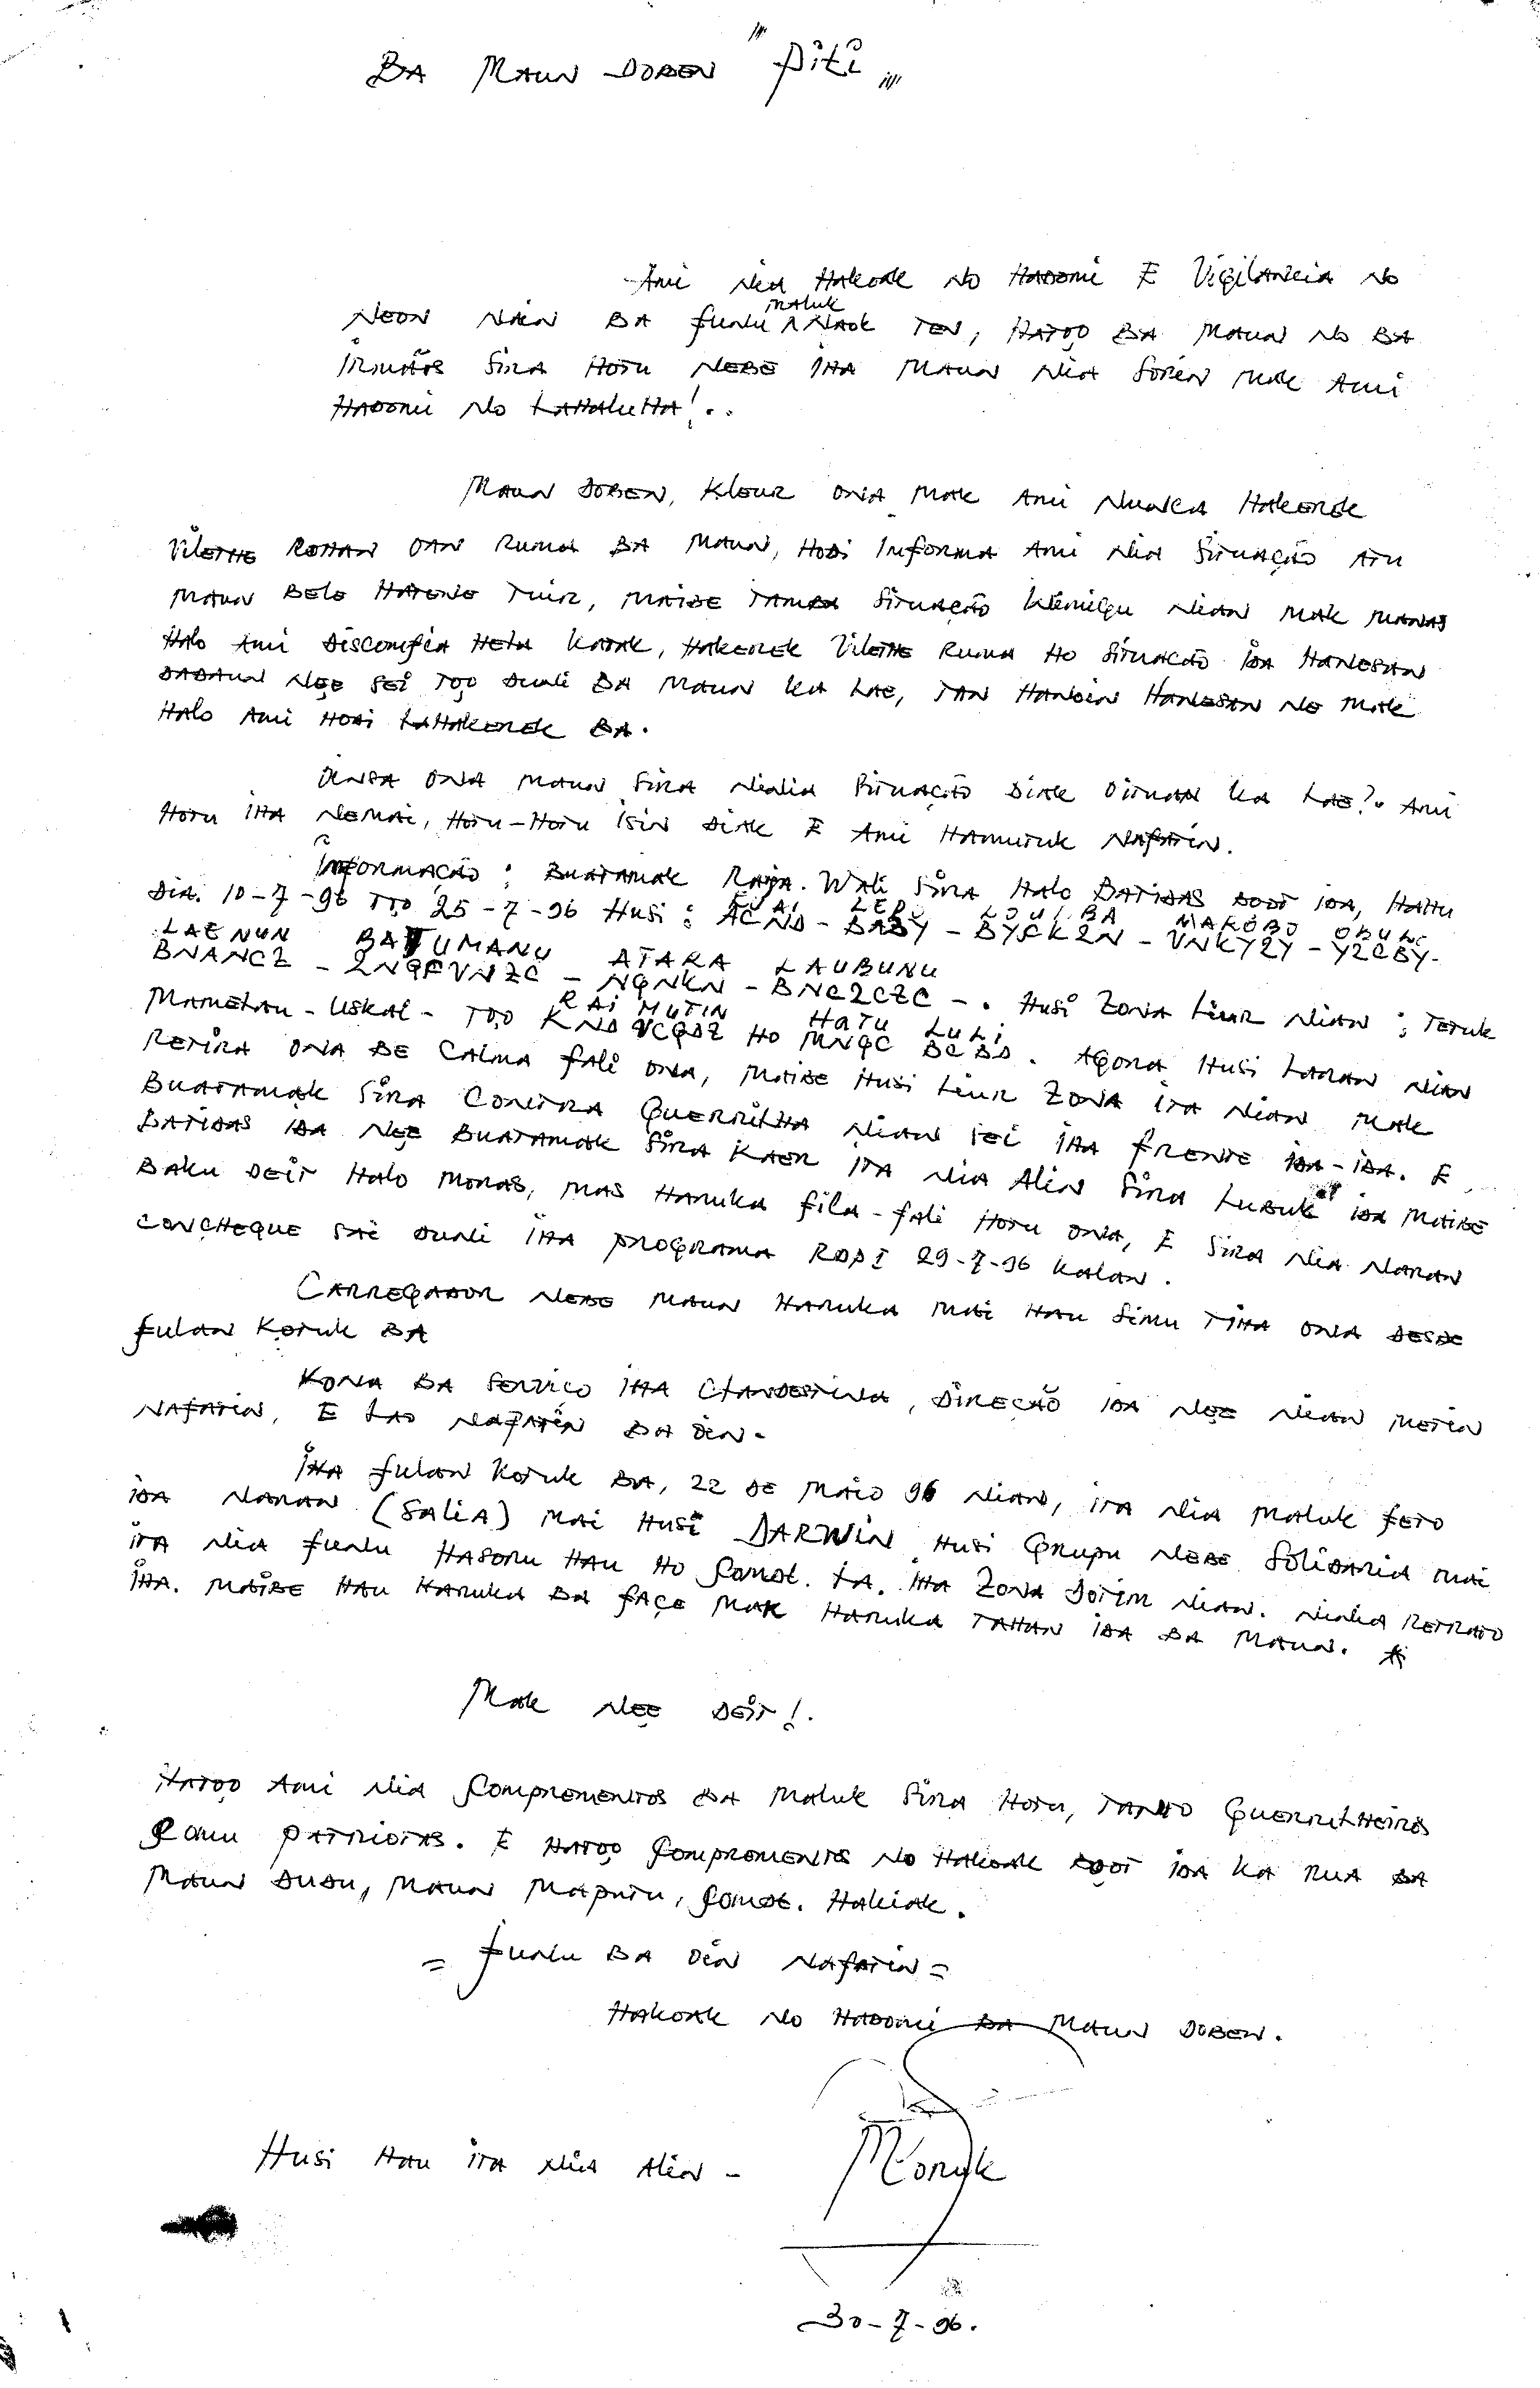 BA MAUN DOBEN "Piti"
Ami nia Hakoak no Hadomi E Vigilancia no
Neon nain BA funu maluk naok ten, Hatoo BA Maun no BA
Irmãos sira Hotu nebe iha Maun nia sorin mak Ami
Hadomi no LaHaluHa!..
Maun Doben, Kleur ona mak Ami nunca Hakerek
Vilethe Rohan oan Ruma BA Maun, Hodi Informa Ami nia situação Atu
Maun Bele Hatene tuir, maibe tamba situação Inimigu nian mak manas
Halo Ami Disconfia Hela Katak, Hakerek Vilethe Ruma Ho situacão ida Hanesan
Dadaun nee sei too duni BA Maun ka Lae, tan Hanoin Hanesan ne mak
Halo Ami Hodi LaHakerek BA.
Insa ona Maun sira nia situação Diak oituan ka Lae? Ami
Hotu iha nemai, Hotu-Hotu isin Diak E Ami Hamutuk nafatin.
Informacão: Buatamak Raja. Wali sira Halo Batidas boot ida, Hahu
Dia. 10-7-96 too 25-7-96 Husi: ACND - BABY - BYCK2N - VNKY2Y - Y2CBY-
FUAI LEBU LOULBA MAKOBO OBULU
LAENUN BATUMANU ATARA LAUBUNU
BNANCZ - 2NQFVNZC - NQNKN - BNC2CZC - . Husi Zona Liur nian; Tetuk
RAI MUTIN HATU LULI
Mamehau - Uskai - too KND VCQDZ Ho MNQC BCBD. Agora Husi Laran nian
Retira ona BE Calma fali ona, maibe Husi Liur Zona ita nian mak
Buatamak sira Contra Guerrilha nian sei iha frente ida-ida. E
Batidas ida nee Buatamak sira Kaer ita nia Alin sira Lubuk ida maibe
Baku Deit Halo moras, mas Haruka fila-fali Hotu ona, E sira nia naran
Concheque sai duni iha programa RDPI 29-7-96 Kalan.
Carregador nebe Maun Haruka mai Hau simu tiha ona desde
fulan Kotuk BA
Kona BA serviço iha Clandestina, Direção ida nee nian metin
nafatin, E Lao nafatin BA oin-
Iha fulan Kotuk BA, 22 de Maio 96 nian, ita nia Maluk feto
ida naran (SALIA) mai Husi DARWIN Husi Grupu nebe solidaria mai
ita nia funu Hasoru Hau Ho Comdt. LA. iha Zona Dotim nian. Retrato
iha. maibe Hau Haruka BA face mak Haruka tahan ida BA Maun. *
Mak nee deit!.
Hatoo Ami nia Comprementos BA Maluk sira Hotu, tanto Guerrilheiros
Comu Patriotas. E Hatoo Comprementos no Hakoak boot ida ka rua BA
Maun Dudu, Maun Maputu, Comdt. Hakiak.
= funu BA oin nafatin =
Hakoak no Hadomi BA Maun Doben.
Husi Hau ita nia Alin -
30-7-96.